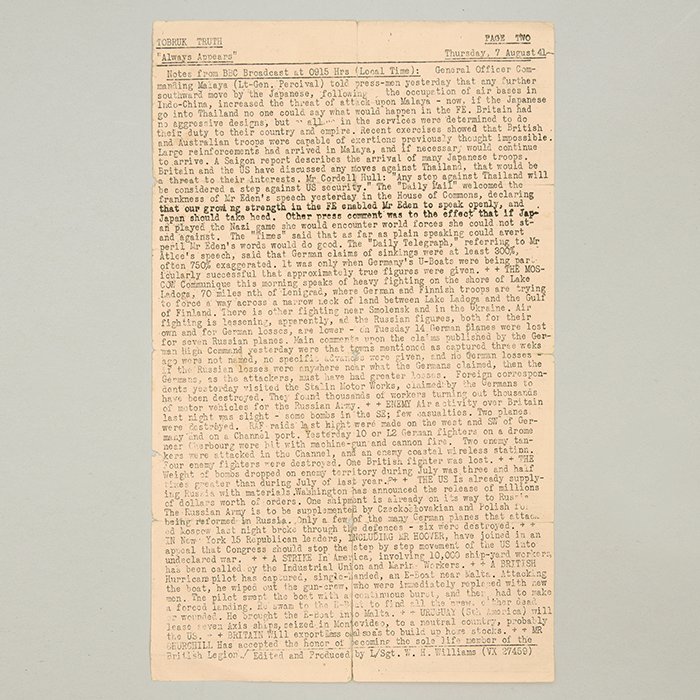 TOBRUK TRUTH PAGE TWO
"Always Appears" Thursday, 7 August 41
Notes from BBC Broadcast at 0915 Hrs (Local Time): General Officer Com-
manding Malaya (Lt-Gen. Percival) told press-men yesterday that any further
southward move by the Japanese, following the occupation of air bases in
Indo-China, increased the threat of attack upon Malaya - now, if the Japanese
go into Thailand no one could say what would happen in the FE. Britain had
no aggressive designs, but all in the services were determined to do
their duty to their country and empire. Recent exercises showed that British
and Australian troops were capable of exertions previously thought impossible.
Large reinforcements had arrived in Malaya, and if necessary would continue
to arrive. A Saigon report describes the arrival of many Japanese troops.
Britain and the US have discussed any moves against Thailand, that would be
a threat to their interests. Mr Cordell Hull: "Any step against Thailand will
be considered a step against US security." The "Daily Mail" welcomed the
frankness of Mr Eden's speech yesterday in the House of Commons, declaring
that our growing strength in the FE enabled Mr Eden to speak openly, and
Japan should take heed. Other press comment was to the effect that if Jap-
an played the Nazi game she would encounter world forces she could not st-
and against. The "Times" said that as far as plain speaking could avert
peril Mr Eden's words would do good. The "Daily Telegraph," referring to Mr
Atlee's speech, said that German claims of sinkings were at least 300%,
often 750% exaggerated. It was only when Germany's U-Boats were being part-
icularly successful that approximately true figures were given. + + THE MOS-
COW Communique this morning speaks of heavy fighting on the shore of Lake
Ladoga, 70 miles nth of Lenigrad, where German and Finnish troops are trying
to force a way across a narrow neck of land between Lake Ladoga and the Gulf
of Finland. There is other fighting near Smolensk and in the Ukraine. Air
fighting is lessening, apparently, as the Russian figures, both for their
own and for German losses, are lower - on Tuesday 14 German planes were lost
for seven Russian planes. Main comments upon the claims published by the Ger-
man High Command yesterday were that towns mentioned as captured three weeks
ago were not named, no specific advances were given, and no German losses -
if the Russian losses were anywhere near what the Germans claimed, then the
Germans, as the attackers, must have had greater losses. Foreign correspon-
dents yesterday visited the Stalin Motor Works, claimed by the Germans to
have been destroyed. They found thousands of workers turning out thousands
of motor vehicles for the Russian Army. + + ENEMY Air activity over Britain
last night was slight - some bombs in the SE; few casualties. Two planes
were destroyed. RAF raids last night were made on the west and SW of Ger-
many and on a Channel port. Yesterday 10 or 12 German fighters on a drome
near Cherbourg were hit with machine-gun and cannon fire. Two enemy tan-
kers were attacked in the Channel, and an enemy coastal wireless station.
Four enemy fighters were destroyed. One British fighter was lost. + + THE
Weight of bombs dropped on enemy territory during July was three and half
times greater than during July of last year. + + THE US Is already supply-
ing Russia with materials. Washington has announced the release of millions
of dollars worth of orders. One shipment is already on its way to Russia
The Russian Army is to be supplemented by Czeckoslovakian and Polish
being reformed in Russia. Only a few of the many German planes that attack-
ed Moscow last night broke through the defences - six were destroyed. + +
IN New York 15 Republican leaders, INCLUDING MR HOOVER, have joined in an
appeal that Congress should stop the step by step movement of the US into
undeclared war. + + A STRIKE In America, involving 10,000 ship-yard workers,
has been called by the Industrial Union and Marine Workers. + + A BRITISH
Hurricane pilot has captured, single-handed, an E-Boat near Malta. Attacking
the boat, he wiped out the gun-crew, who were immediately replaced with new
men. The pilot swept the boat with a continuous burst, and then had to make
a forced landing. He swam to the E-Boat to find all the crew either dead
or wounded. He brought the E-Boat into Malta. + + URUGUAY (Sth America) will
lease seven Axis ships, seized in Montevideo, to a neutral country, probably
the US. + + BRITAIN Will export less coal so as to build up home stocks. + + MR
CHURCHILL Has accepted the honor of becoming the sole life member of the
British Legion./ Edited and Produced by L/Sgt. W. H. Williams (VX 27459)